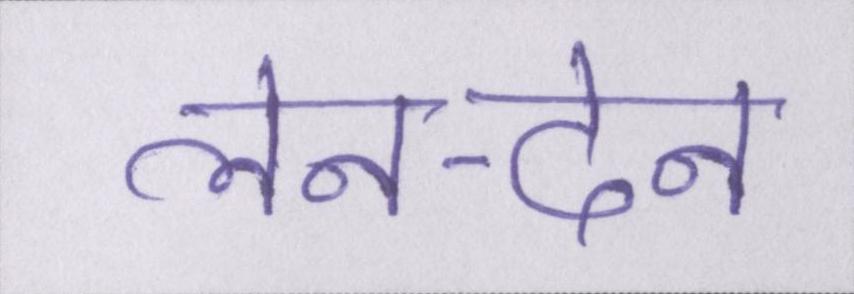 लेन-देन